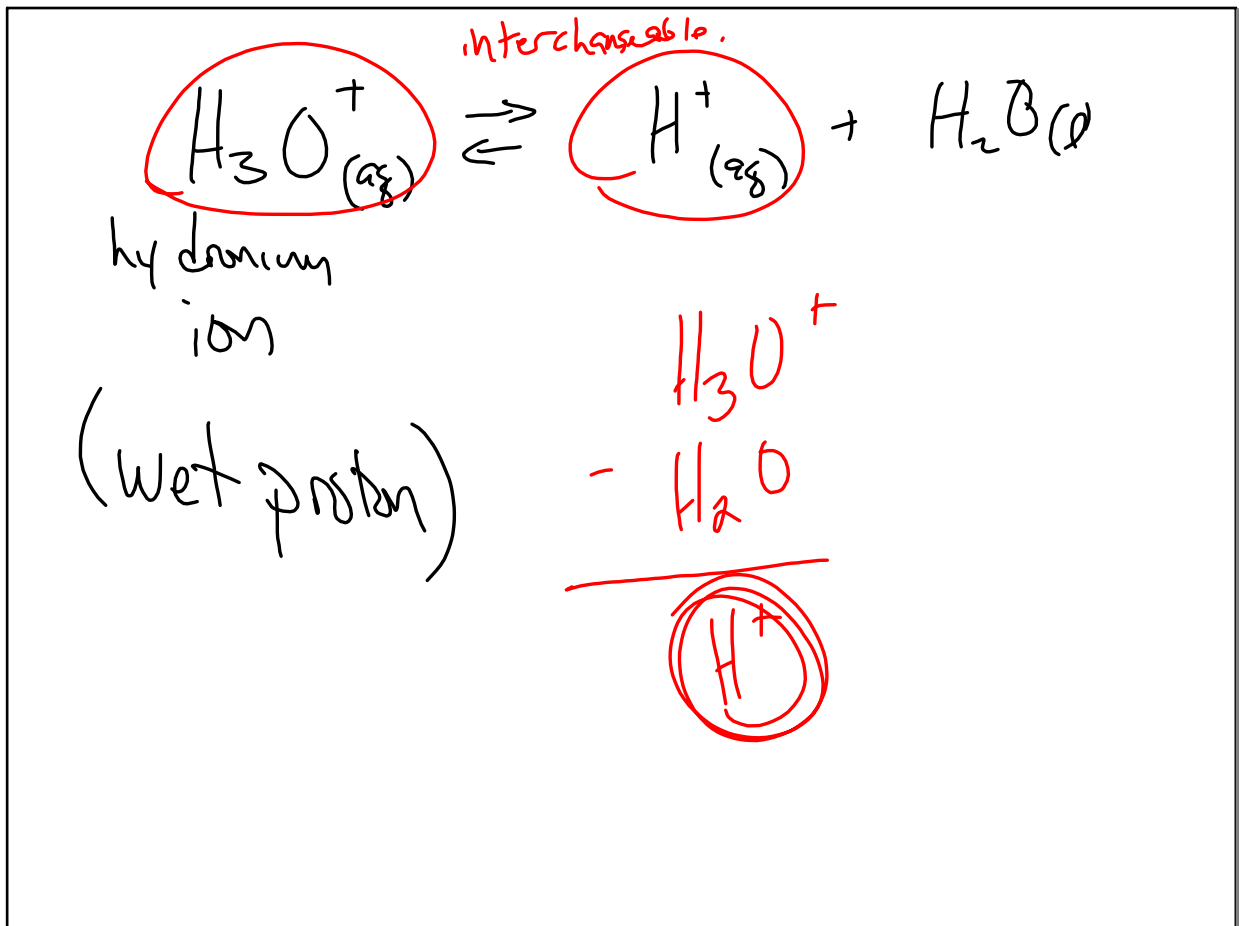 interchangeable.
H₃O⁺(aq) ⇌ H⁺(aq) + H₂O(l)
hydronium
ion
(wet proton)
H₃O⁺
- H₂O
H⁺